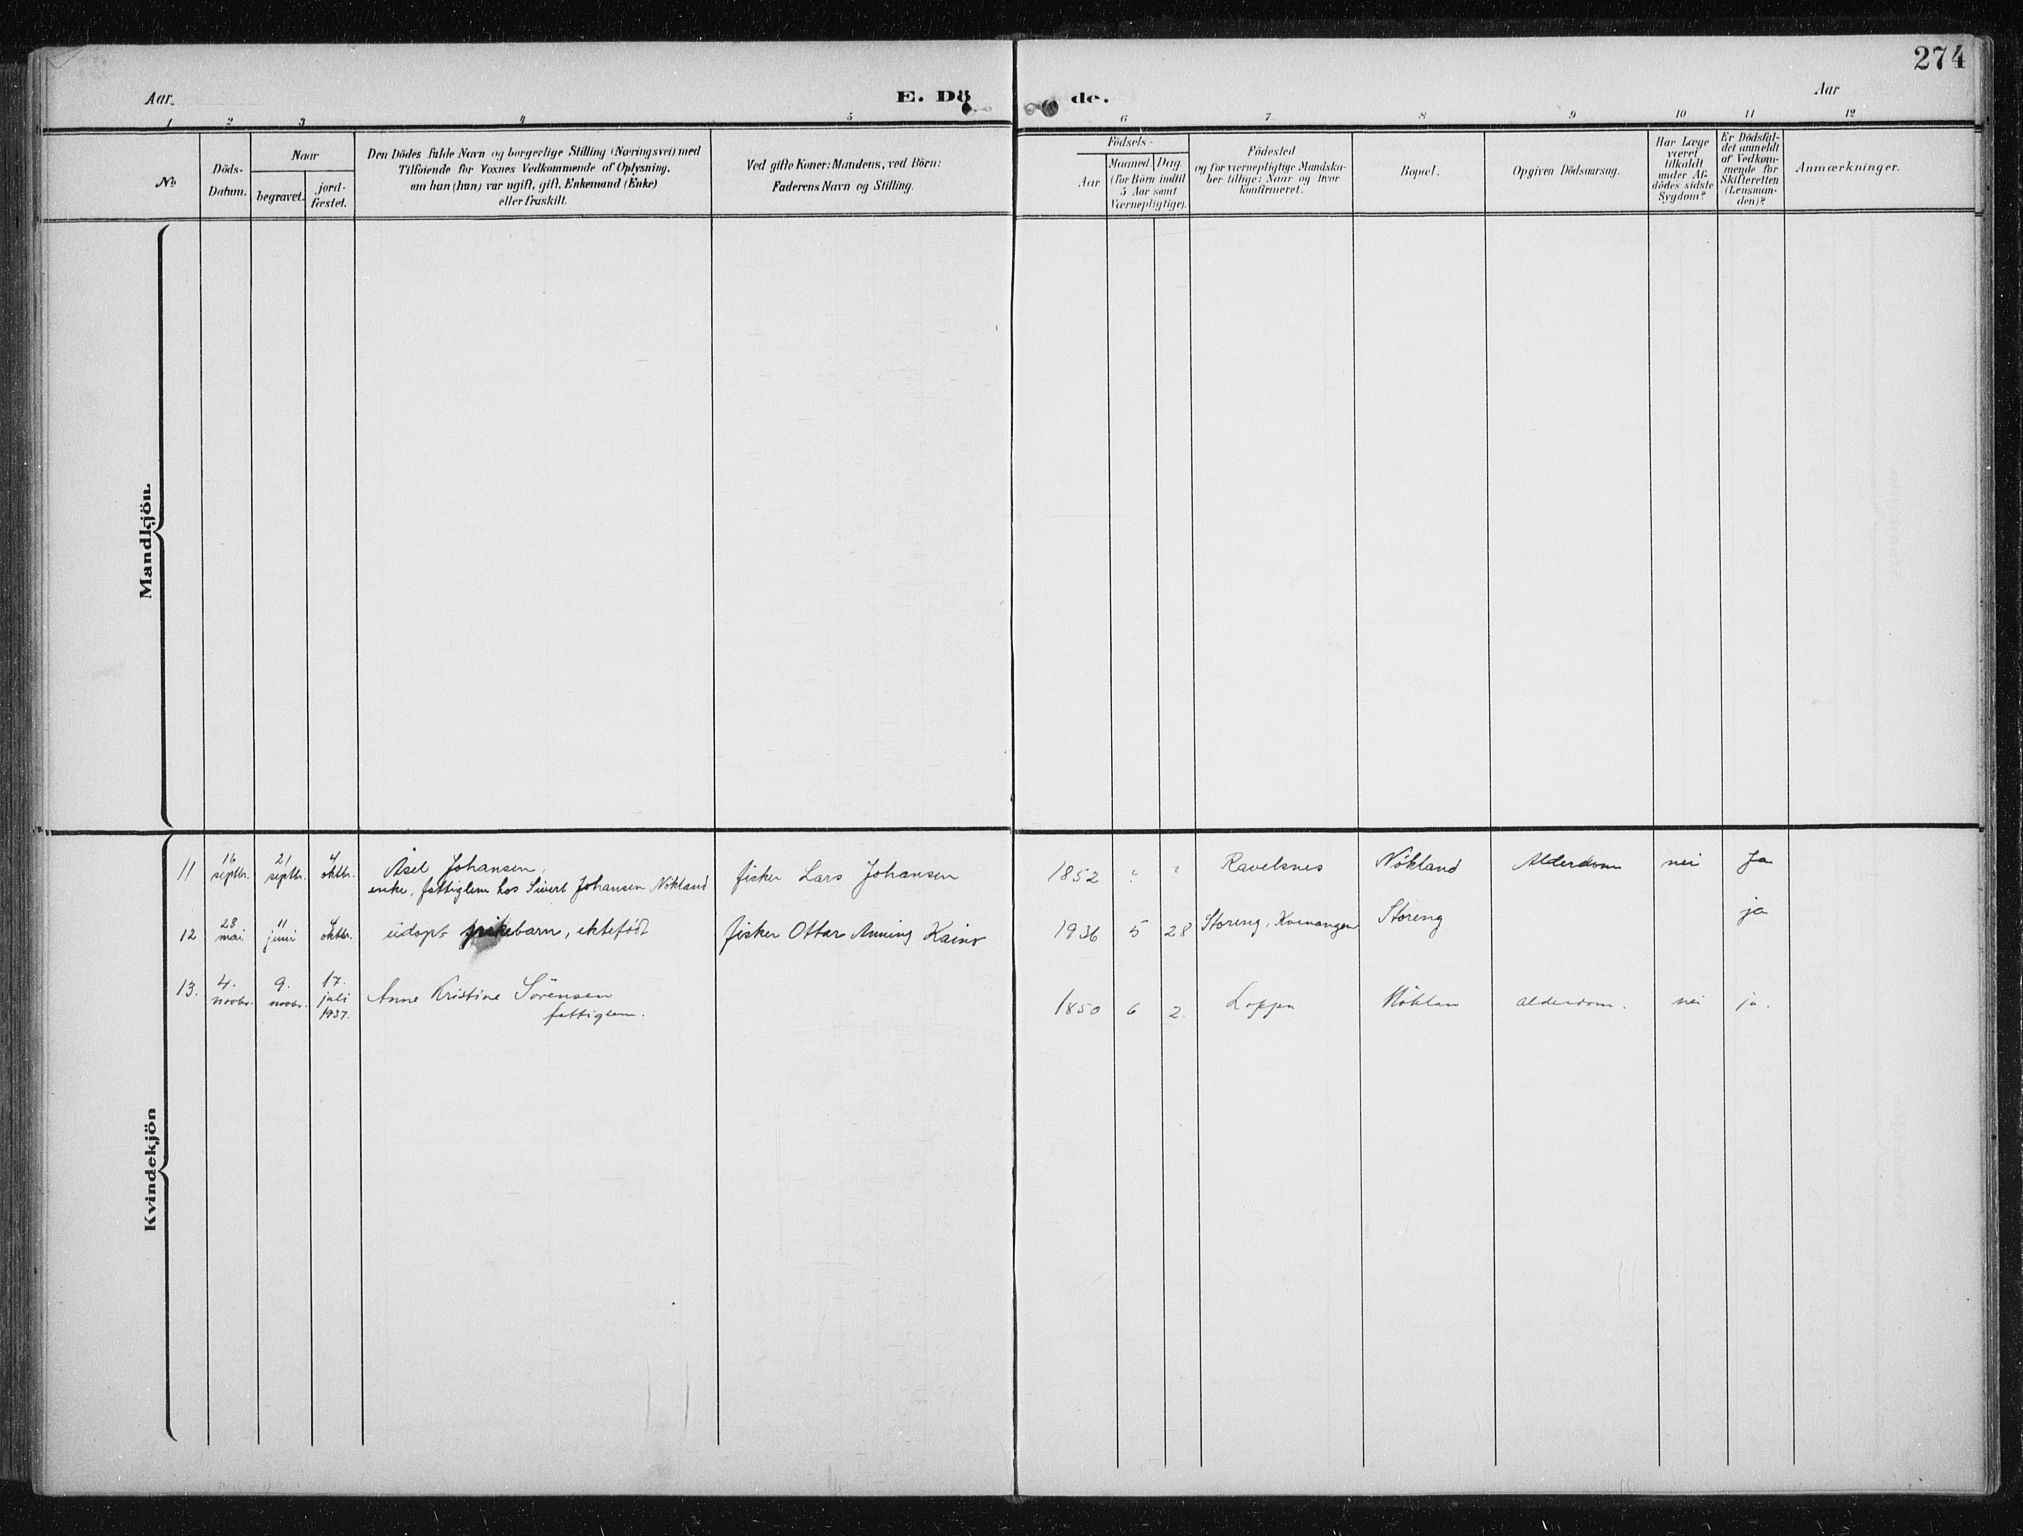 274
Aar
E. Döde.
Aar
1 2 3 4 5 6 7 8 9 10 11 12
No
Döds-Datum.
Naar
begravet.
jord-fæstet.
Den Dödes fulde Navn og borgerlige Stilling (Næringsvei) med
Tilföiende for Voxnes Vedkommende af Oplysning,
om han (hun) var ugift, gift, Enkemand (Enke)
eller fraskilt.
Ved gifte Koner: Mandens, ved Börn:
Faderens Navn og Stilling.
Födsels-
Aar
Maaned. Dag
(for Börn indtil
5 Aar samt
Værnepligtige).
Födested
og for værnepligtige Mandska-
ber tillige: Naar og hvor
konfirmeret.
Bopæl.
Opgiven Dödsaarsag.
Har Læge
været
tilkaldt
under Af-
dödes sidste
Sygdom?
Er Dödsfal-
det anmeldt
af Vedkom-
mende for
Skifteretten
(Lensman-
den)?
Anmærkninger.
Mandkjön.
Kvindekjön
11 16 septbr. 21 septbr. 4 oktbr. Åsel Johansen,
enke, fattiglem hos Sivert Johansen Nökland fisker Lars Johansen 1852 ? ? Ravelsnes Nökland Alderdom nei Ja
12 28 mai 11 juni 4 oktbr. udöpt pikebarn, ektefödt fisker Ottar Anning Kaino 1936 5 28 Storeng, Kvenangen Storeng ja
13. 4. novbr. 9. novbr. 17. juli 1937. Anne Kristine Sörensen
fattiglem. 1850 6 2. Loppa Nöklan alderdom. nei ja.